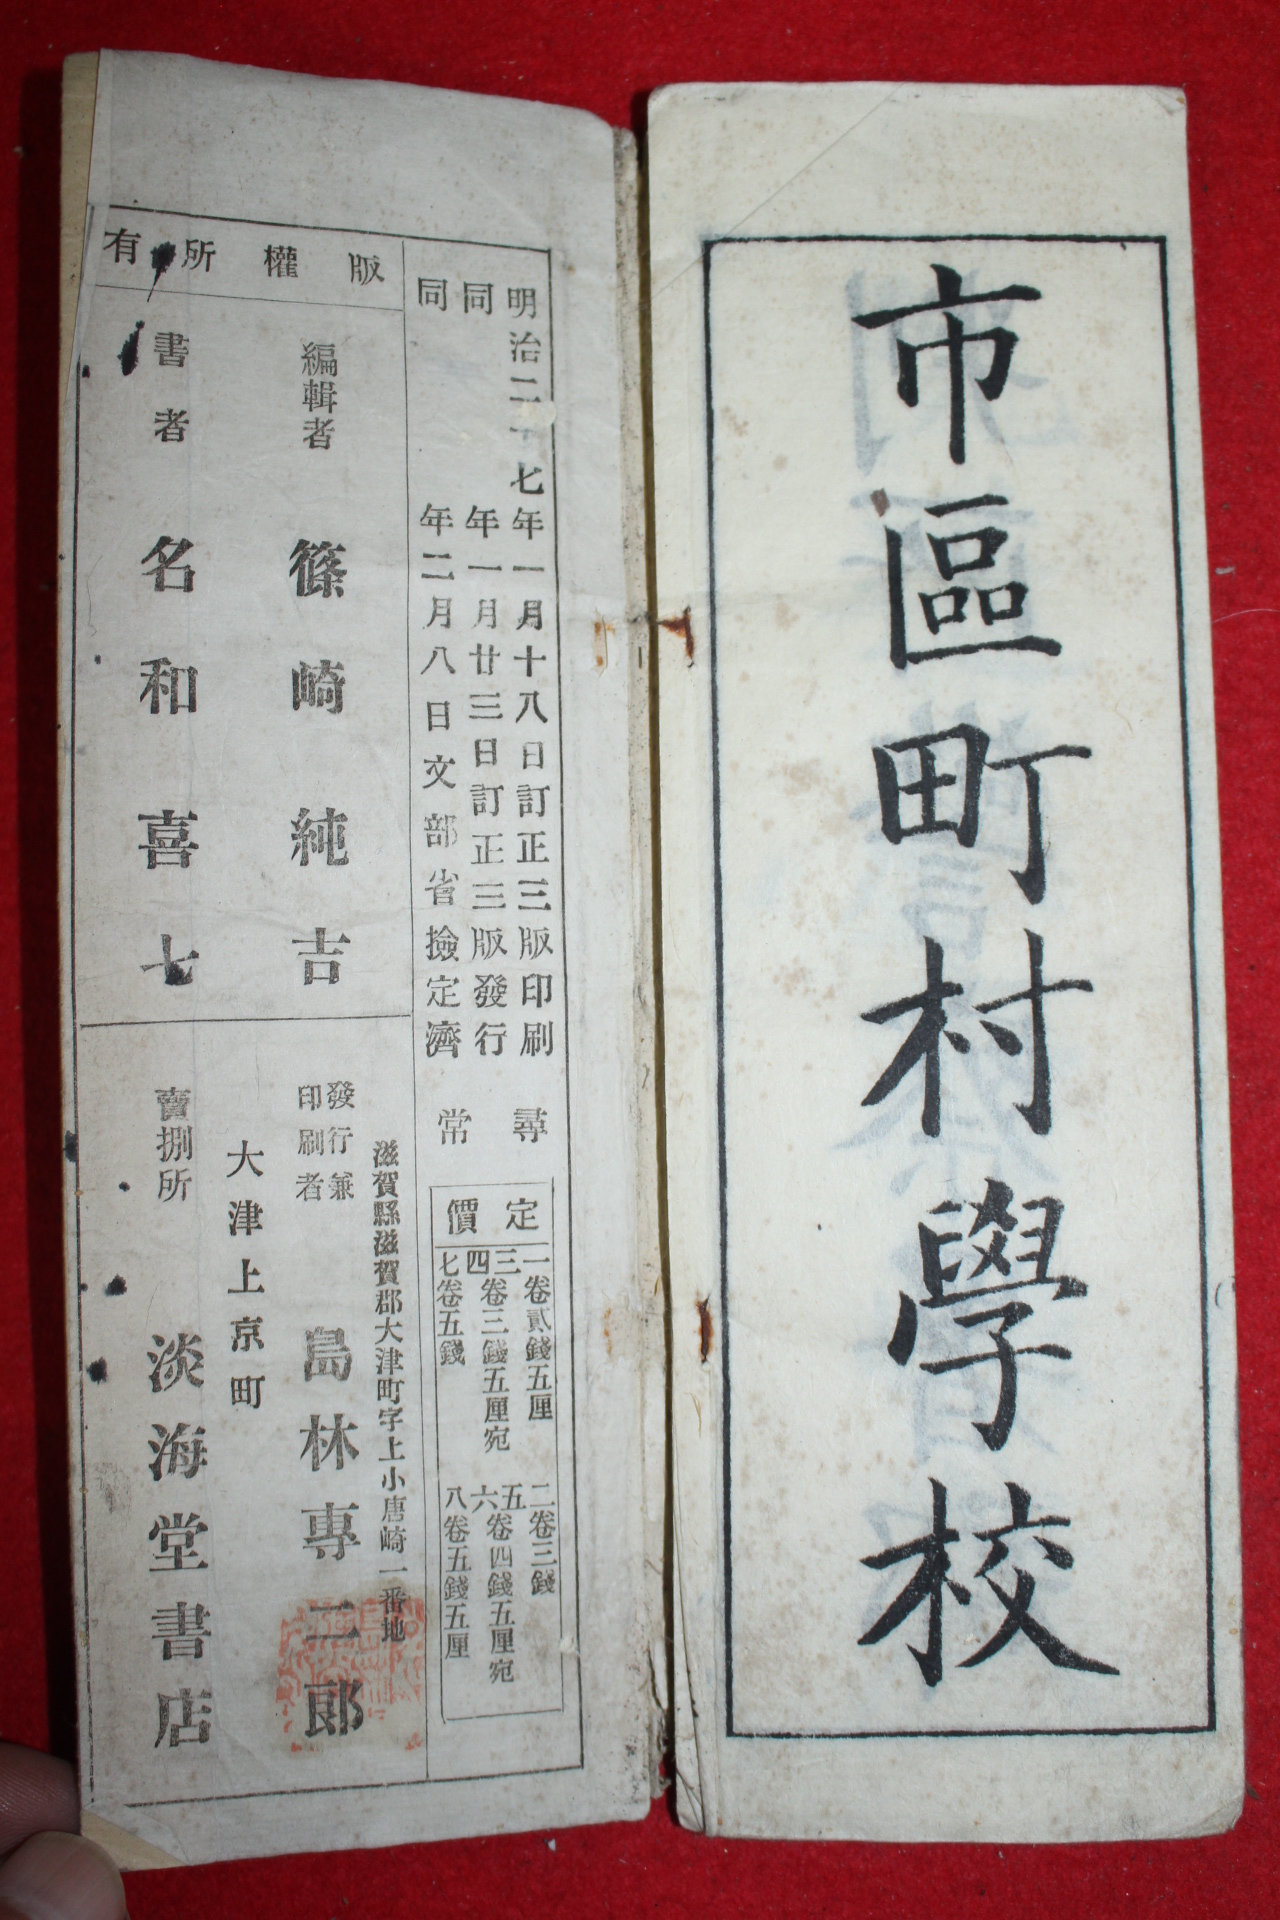 市區町村學校
明治二十七年一月十八日訂正三版印刷
同年一月廿三日訂正三版發行
同年二月八日文部省撿定濟
尋常
定價
一卷貳錢五厘
二卷三錢
三四卷三錢五厘宛
五六卷四錢五厘宛
七卷五錢
八卷五錢五厘
版權所有
編輯者 篠崎純吉
書者 名和喜七
滋賀縣滋賀郡大津町字上小唐崎一番地
發行兼印刷者 島林專二郎
大津上京町
賣捌所 淡海堂書店